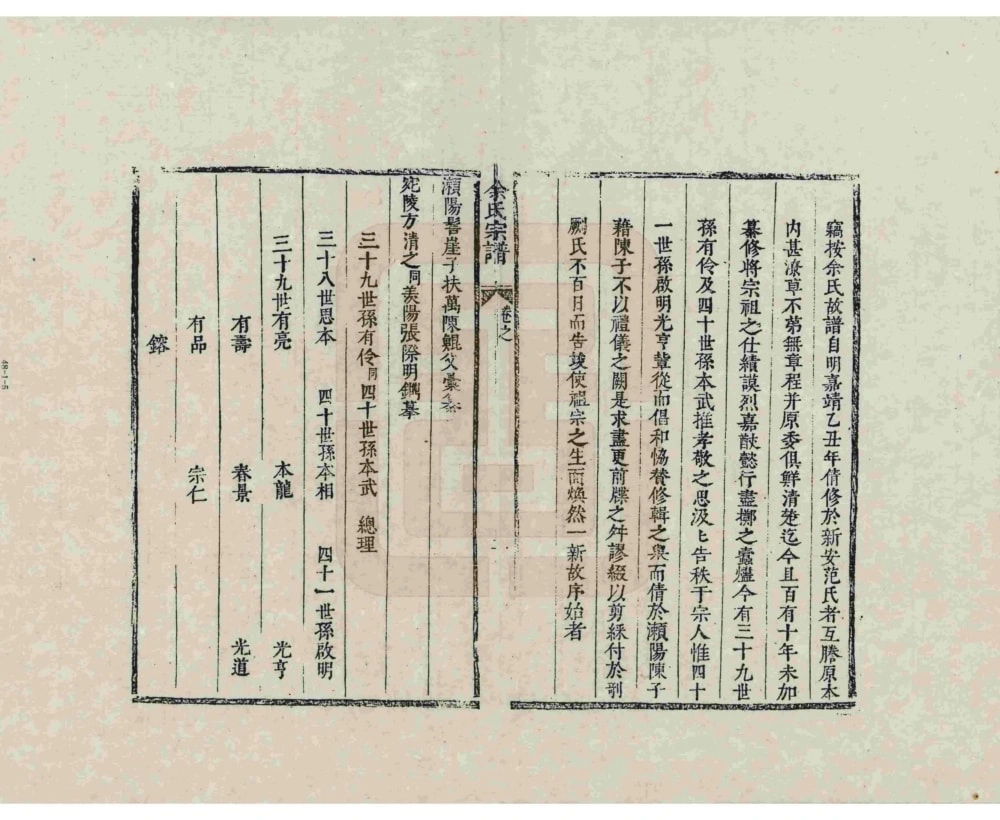 竊按余氏故譜自明嘉靖乙丑年倩修於新安范氏者互謄原本
内甚潦草不第無章程并原委俱鮮清楚迄今且百有十年未加
纂修將宗祖之仕績謨烈嘉猷懿行盡擲之蠹燼今有三十九世
孫有伶及四十世孫本武推孝敬之思汲匕告秩于宗人惟四十
一世孫啟明光亨輩從而倡和恊賛修輯之舉而倩於瀨陽陳子
藉陳子不以禮儀之闕是求盡更前牒之舛謬綴以剪綵付於剞
劂氏不百日而告竣使祖宗之生面煥然一新故序始者
余氏宗譜
卷之
瀨陽髻崖子扶萬陳鯤父彙叅
宛陵方清之同羨陽張際明鐫摹
三十九世孫有伶同四十世孫本武 總理
三十八世思本 四十世孫本相 四十一世孫啟明
三十九世有亮 本龍 光亨
有壽 春景 光道
有品 宗仁
鎔